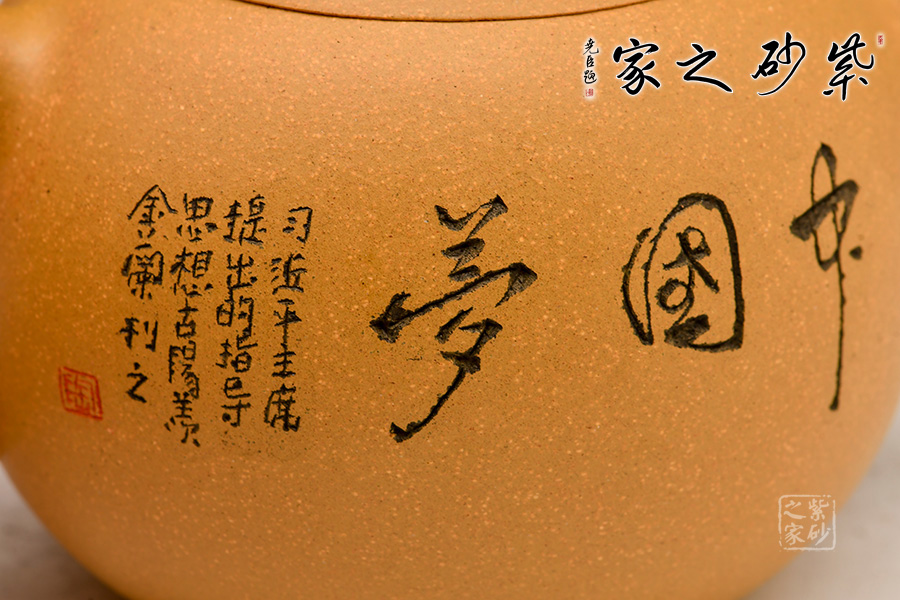 紫砂之家
尧臣题
中國夢
习近平主席
提出的指导
思想古陽羡
金蘭刻之
紫砂
之家